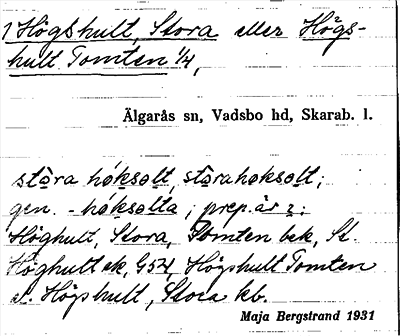 1 Högshult, Stora eller Högs-
hult Tomten 1/4,
Älgarås sn, Vadsbo hd, Skarab. l.
stōra höksølt, stōrahøksølt;
gen. -høksølta; prep. är i:
Höghult, Stora, Tomten bek, St.
Höghult ek. G54, Högshult Tomten
el. Högshult, Stora kb.
Maja Bergstrand 1931